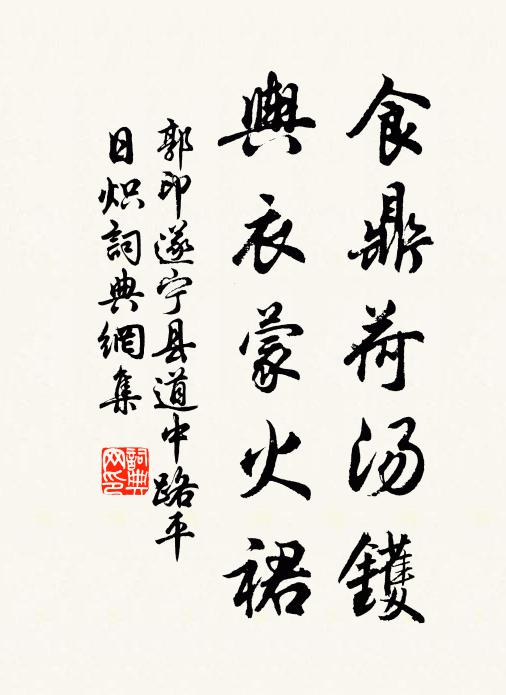 食鼎荷汤鑊
輿衣蒙火裙
郭印遂宁县道中路平
日炽詞典網集
詞典网印